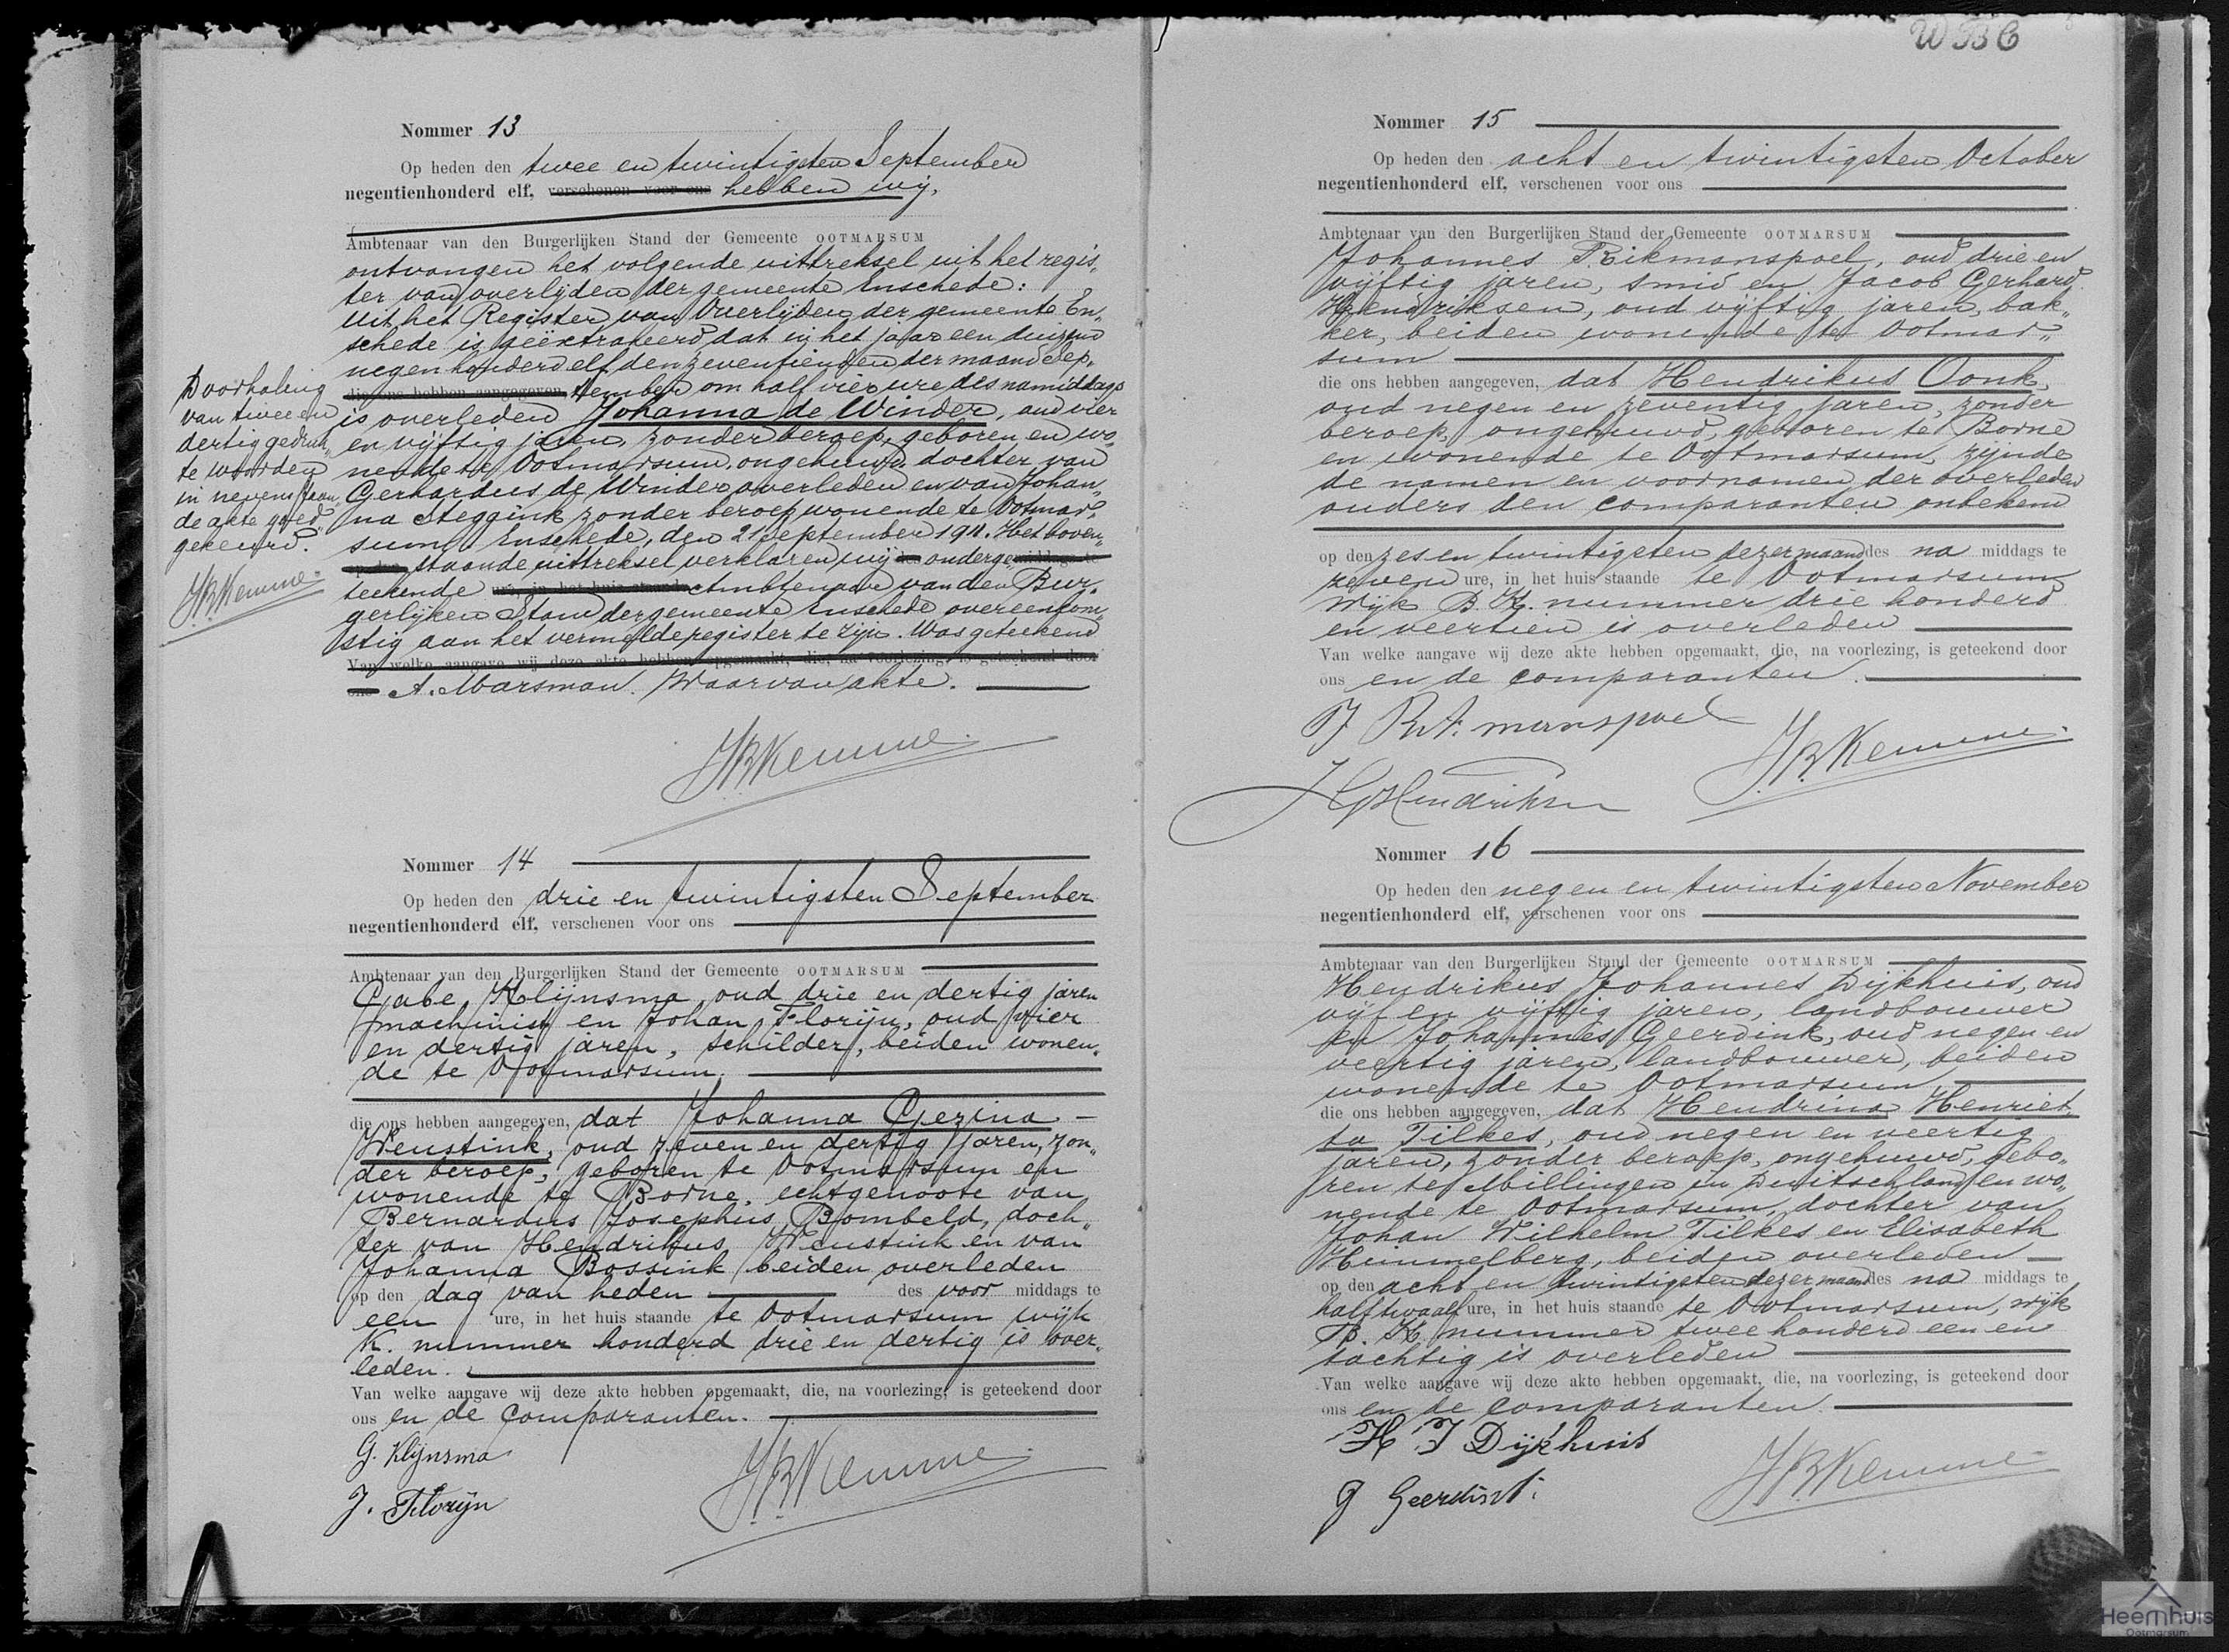 Nommer 13
Op heden den twee en twintigsten September
negentienhonderd elf, verschenen voor ons hebben wij,
Ambtenaar van den Burgerlijken Stand der Gemeente OOTMARSUM
ontvangen het volgende uittreksel uit het regis„
ter van overlijden der gemeente Enschede:
Uit het Register van Overlijden der gemeente En„
schede is geëxtraheerd dat in het jaar een duizend
negenhonderd elf den zeventienden der maand Sep„
die ons hebben aangegeven, tember om half vier ure des namiddags
is overleden Johanna de Winder, oud vier
en vijftig jaren, zonder beroep, geboren en wo„
nende te Ootmarsum, ongehuwd, dochter van
Gerhardus de Winder overleden en van Johan„
na Steggink zonder beroep wonende te Ootmar„
sum. Enschede, den 21 September 1911. Het boven„
op den staande uittreksel verklaren wij des onderge„ middags te
teekende ure, in het huis staande Ambtenaar van den Bur„
gerlijken Stand der gemeente Enschede overeenkom„
stig aan het vermelde register te zijn. Was geteekend
Van welke aangave wij deze akte hebben opgemaakt, die, na voorlezing, is geteekend door
ons A. Marsman. Waarvan akte.
JBKemme.
Doorhaling
van twee en
dertig gedruk„
te woorden
in nevenstaan„
de akte goed„
gekeurd.
JBKemme
Nommer 14
Op heden den drie en twintigsten September
negentienhonderd elf, verschenen voor ons
Ambtenaar van den Burgerlijken Stand der Gemeente OOTMARSUM
Gabe Klijnsma, oud drie en dertig jaren
machinist en Johan Florijn, oud vier
en dertig jaren, schilder, beiden wonen„
de te Ootmarsum.
die ons hebben aangegeven, dat Johanna Gezina
Weustink, oud zeven en dertig jaren, zon„
der beroep, geboren te Ootmarsum en
wonende te Borne, echtgenoote van
Bernardus Josephus Bombeld, doch„
ter van Hendrikus Weustink en van
Johanna Bossink beiden overleden
op den dag van heden des voor middags te
een ure, in het huis staande te Ootmarsum wijk
K. nummer honderd drie en dertig is over„
leden.
Van welke aangave wij deze akte hebben opgemaakt, die, na voorlezing, is geteekend door
ons en de comparanten.
G. Klijnsma
JBKemme
J. Florijn
WBC
Nommer 15
Op heden den acht en twintigsten October
negentienhonderd elf, verschenen voor ons
Ambtenaar van den Burgerlijken Stand der Gemeente OOTMARSUM
Johannes Rikmanspoel, oud drie en
vijftig jaren, smid en Jacob Gerhard
Hendriksen, oud vijftig jaren, bak„
ker, beiden wonende te Ootmar„
sum
die ons hebben aangegeven, dat Hendrikus Oonk,
oud negen en zeventig jaren, zonder
beroep, ongehuwd, geboren te Borne
en wonende te Ootmarsum, zijnde
de namen en voornamen der overleden
ouders den comparanten onbekend
op den zes en twintigsten dezer maand des na middags te
zeven ure, in het huis staande te Ootmarsum
Wijk B. K. nummer drie honderd
en veertien is overleden
Van welke aangave wij deze akte hebben opgemaakt, die, na voorlezing, is geteekend door
ons en de comparanten.
J Rikmanspoel
JBKemme.
JGHendriksen
Nommer 16
Op heden den negen en twintigsten November
negentienhonderd elf, verschenen voor ons
Ambtenaar van den Burgerlijken Stand der Gemeente OOTMARSUM
Hendrikus Johannes Dijkhuis, oud
vijf en vijftig jaren, landbouwer
en Johannes Geerdink, oud negen en
veertig jaren, landbouwer, beiden
wonende te Ootmarsum
die ons hebben aangegeven, dat Hendrina Henriet„
ta Tilkes, oud negen en veertig
jaren, zonder beroep, ongehuwd, gebo„
ren te Millingen in Duitschland en wo„
nende te Ootmarsum, dochter van
Johan Wilhelm Tilkes en Elisabeth
Heimmelberg, beiden overleden
op den acht en twintigsten dezer maand des na middags te
half twaalf ure, in het huis staande te Ootmarsum, wijk
B. K. nummer twee honderd een en
tachtig is overleden
Van welke aangave wij deze akte hebben opgemaakt, die, na voorlezing, is geteekend door
ons en de comparanten.
H J Dijkhuis
JBKemme
J Geerdink
Heemhuis
Ootmarsum